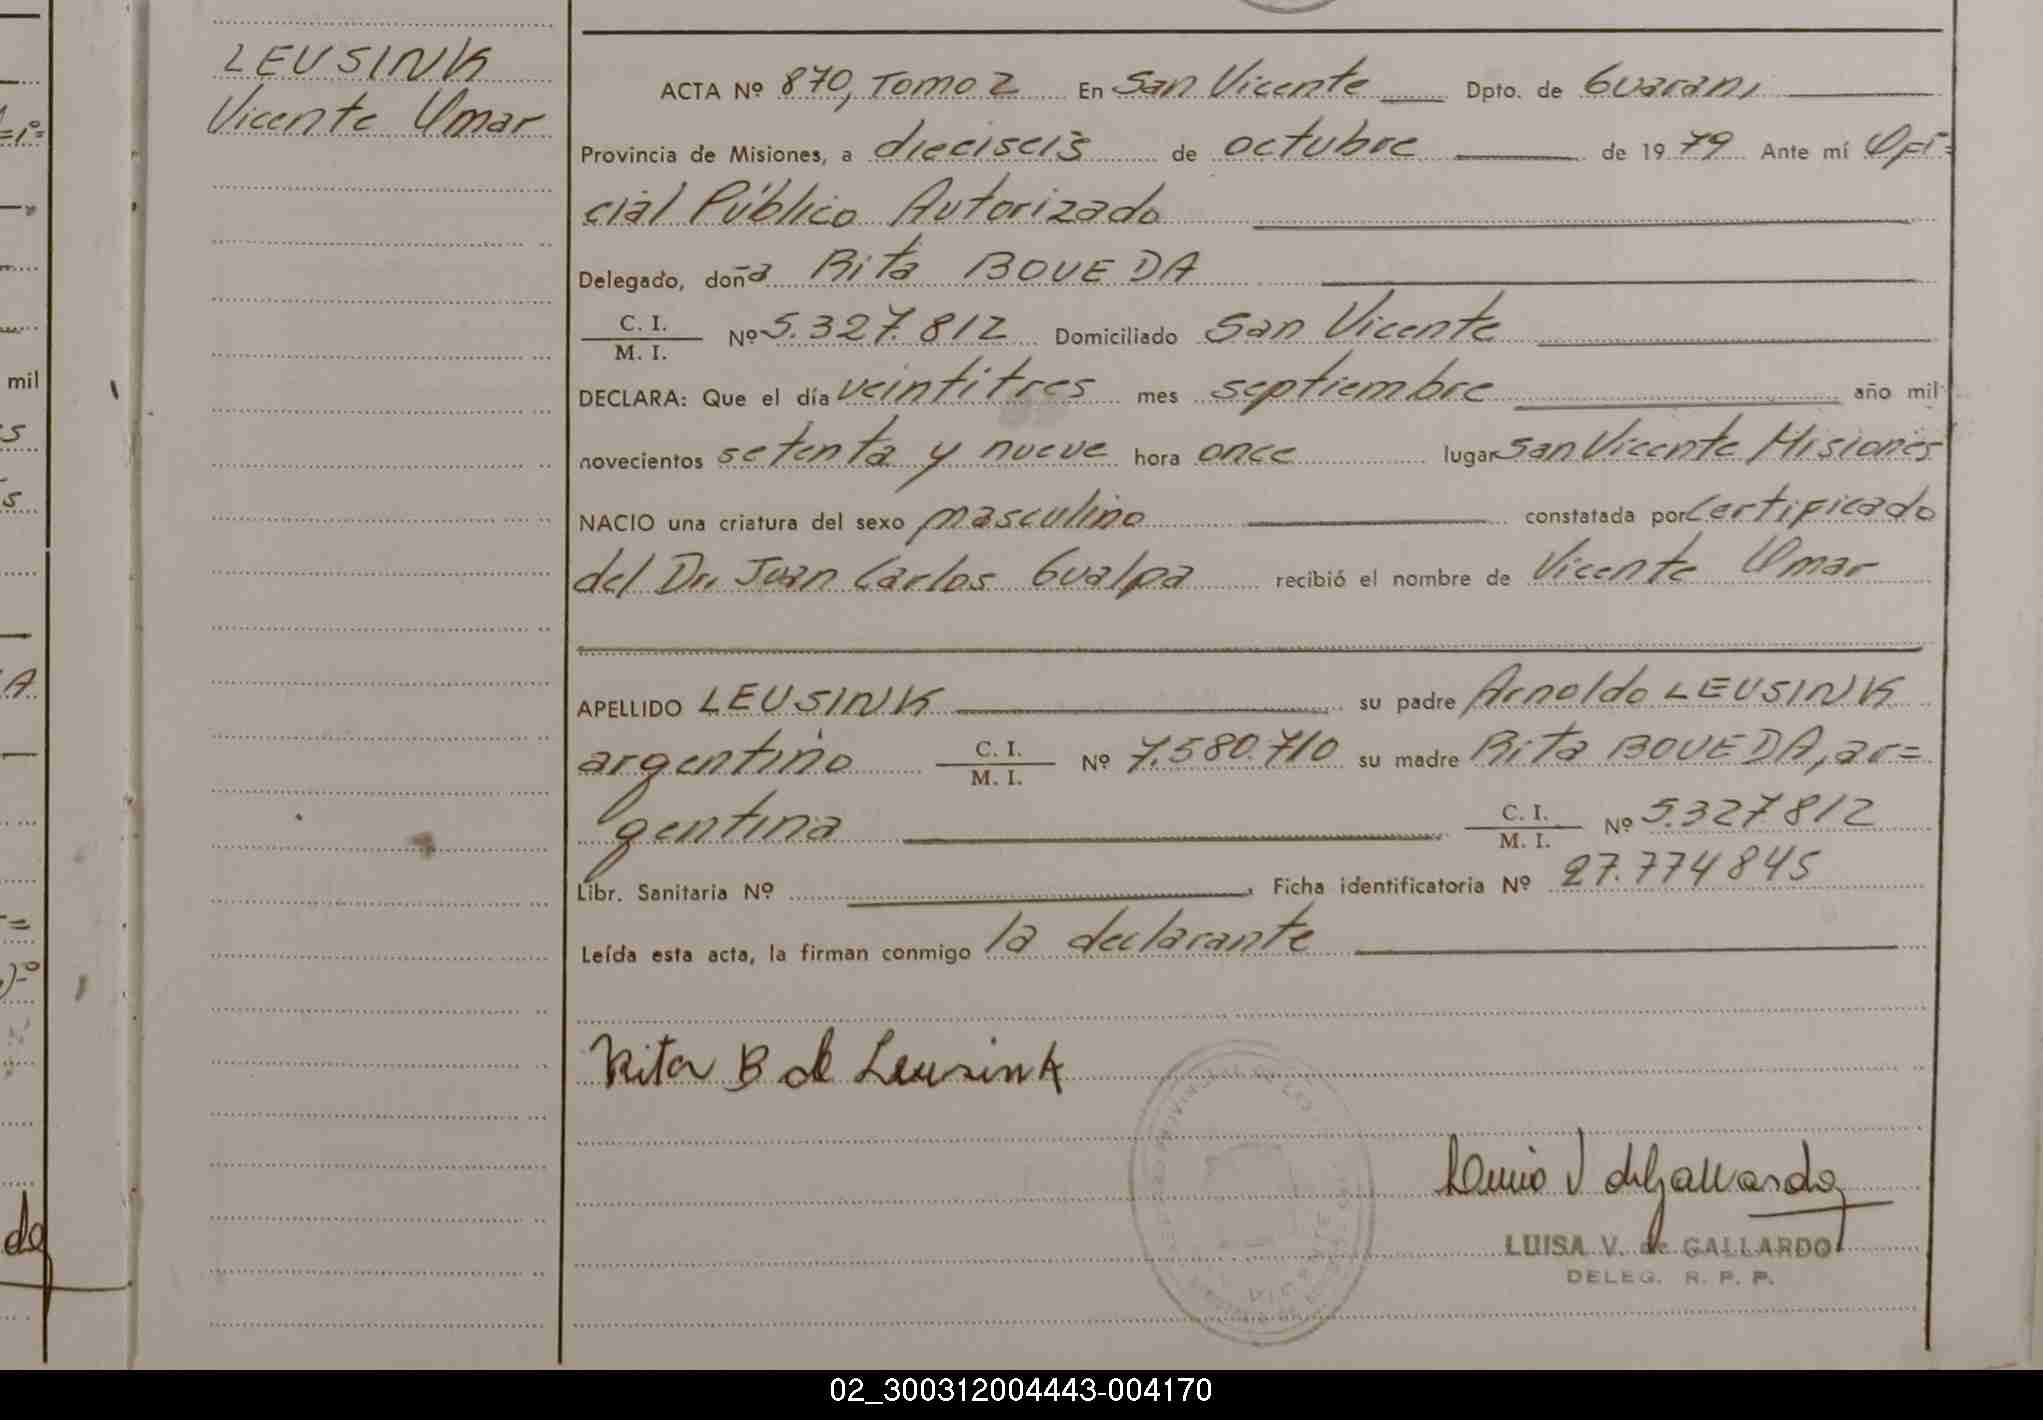 LEUSINK
Vicente Omar
ACTA Nº 870, Tomo 2 En San Vicente Dpto. de Guarani
Provincia de Misiones, a dieciseis de octubre de 1979 Ante mí Ofi=
cial Público Autorizado
Delegado, doña Rita BOVEDA
C. I.
M. I.
Nº 5.327.812 Domiciliado San Vicente
DECLARA: Que el día veintitres mes septiembre año mil
novecientos setenta y nueve hora once lugar San Vicente Misiones
NACIO una criatura del sexo masculino constatada por Certificado
del Dr. Juan Carlos Gualpa recibió el nombre de Vicente Omar
APELLIDO LEUSINK su padre Arnoldo LEUSINK
argentino C. I. M. I. Nº 7.580.710 su madre Rita BOVEDA, ar=
gentina C. I. M. I. Nº 5.327812
Libr. Sanitaria Nº Ficha identificatoria Nº 27.774845
Leída esta acta, la firman conmigo la declarante
Rita B de Leusink
V de Gallardo
LUISA V. de GALLARDO
DELEG. R. P. P.
mil
02_300312004443-004170